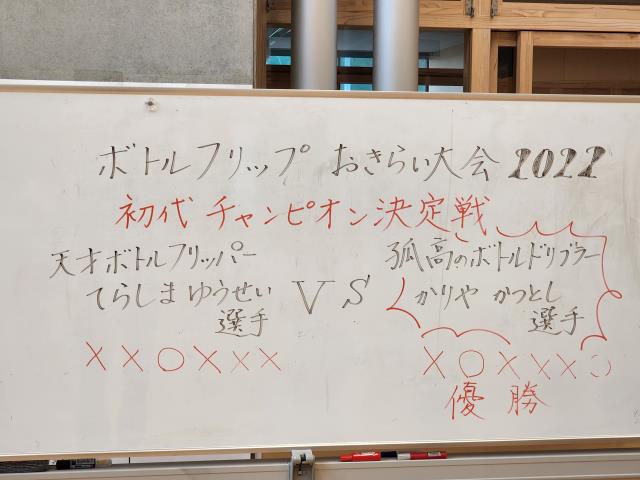 ボトルフリップ おきらい大会 2022
初代 チャンピオン決定戦
天才ボトルフリッパー
てらしまゆうせい
選手
VS
孤高のボトルドリブラー
かりや かつとし
選手
××○×××
×○×××○
優勝